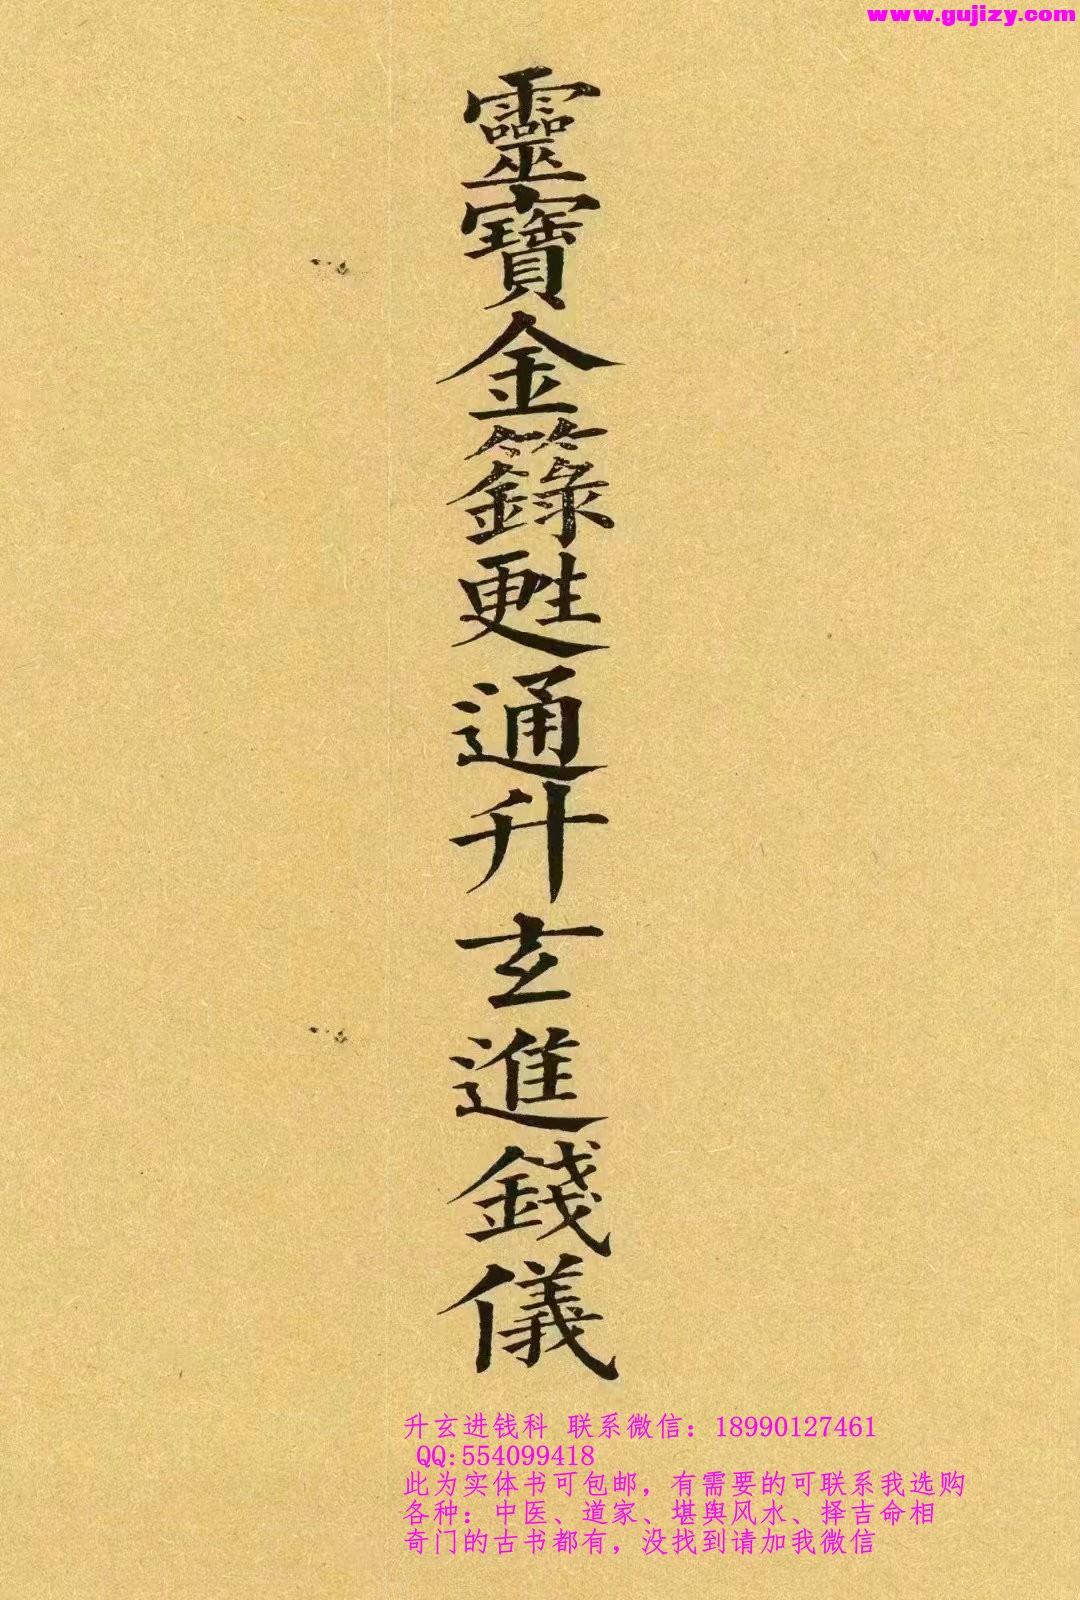 www.gujizy.com
靈寳金籙甦通升玄進錢儀
升玄进钱科 联系微信：18990127461
QQ:554099418
此为实体书可包邮，有需要的可联系我选购
各种：中医、道家、堪舆风水、择吉命相
奇门的古书都有，没找到请加我微信